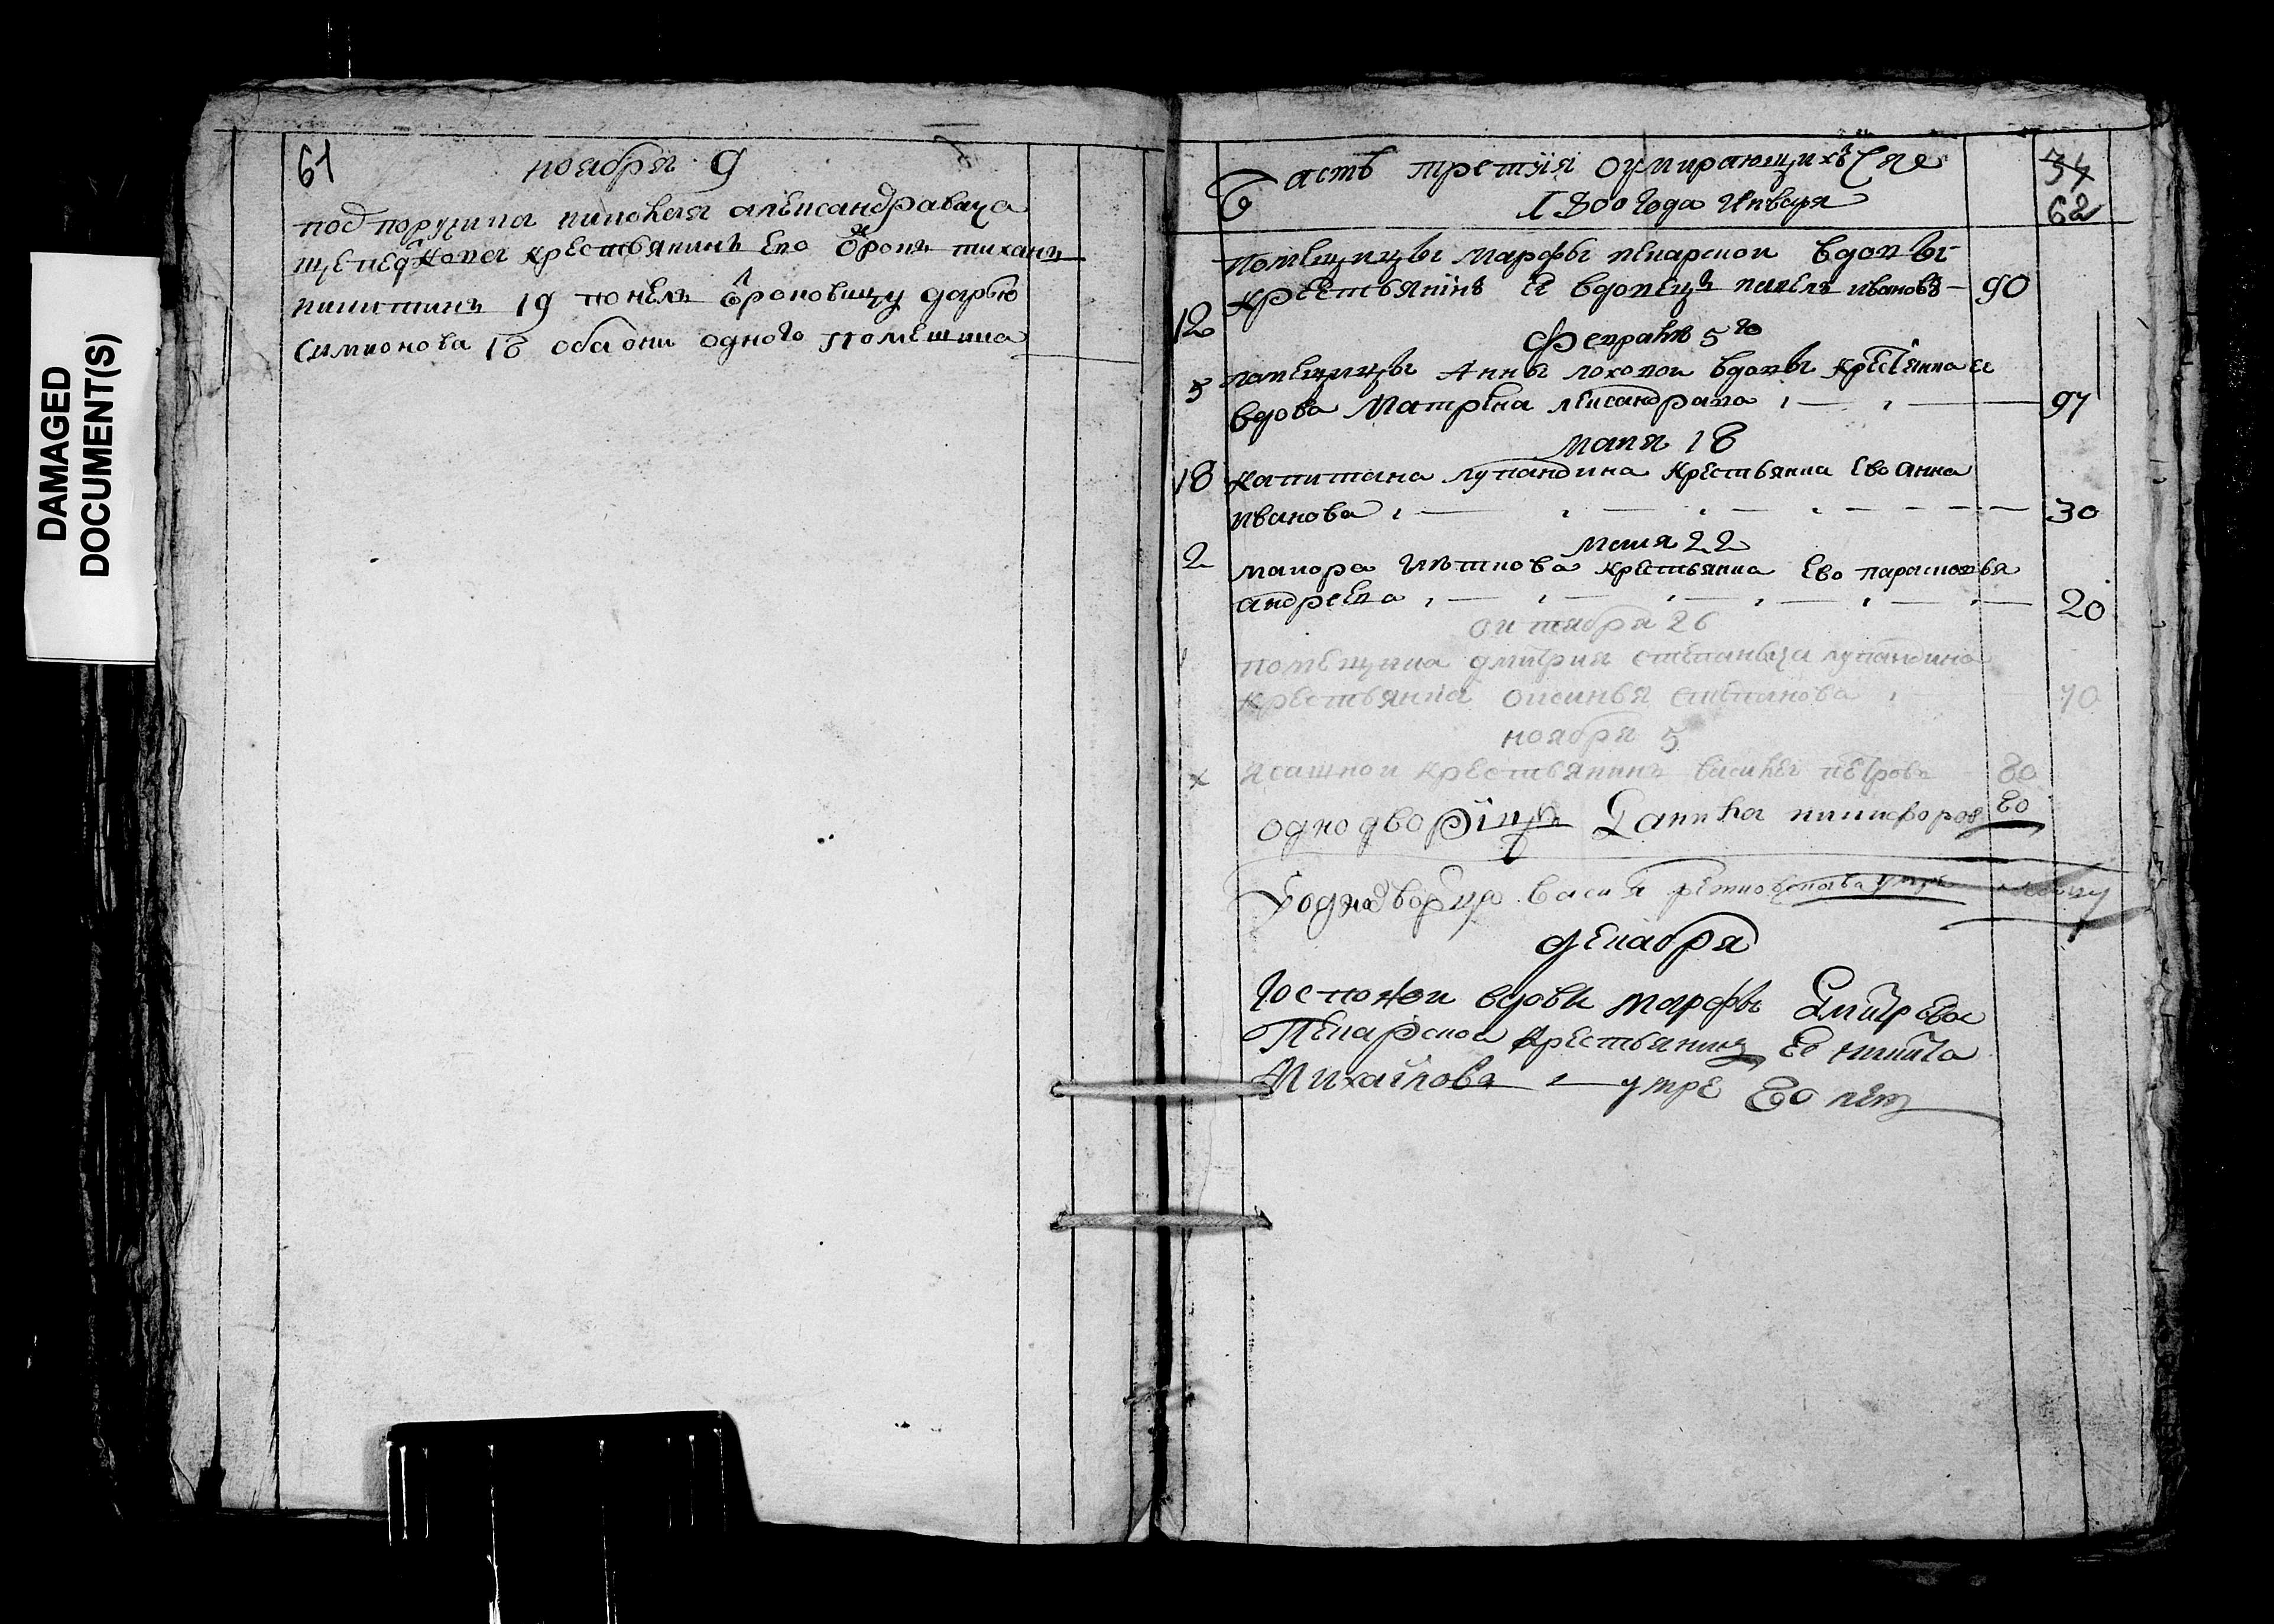 DAMAGED
DOCUMENT(S)
61
ноября 9
подпорутчика николая александравича
крестьянинъ ево тихонъ
никитинъ 19 понелъ дарью
симионова 18 оба они одного помещика
Часть третия о умирающихъ
1800 года Генваря
34
62
помещицы марфы пекарской вдовы
12 крестьянинъ ее вдовецъ павелъ ивановъ 90
февраля 5го
5 помещицы Анны лоховой вдовы крестьянка ее
вдова Матрена лександрава 97
маия 18
18 капитана лупандина крестьянка ево анна
иванова 30
маия 22
2 маиора крестьянка ево парасковья
андреева 20
октября 26
помещика дмитрия степаныча лупандина
крестьянка оксинья степанова 70
ноября 5
ясашной крестьянинъ василей петровъ 80
однодворицъ Данила никифоров 80
однодворцо васи
декабря
Госпожи вдовы марфы Дмитревы
Пекарской крестьяниц ее никита
Михайлова умре 80 лет